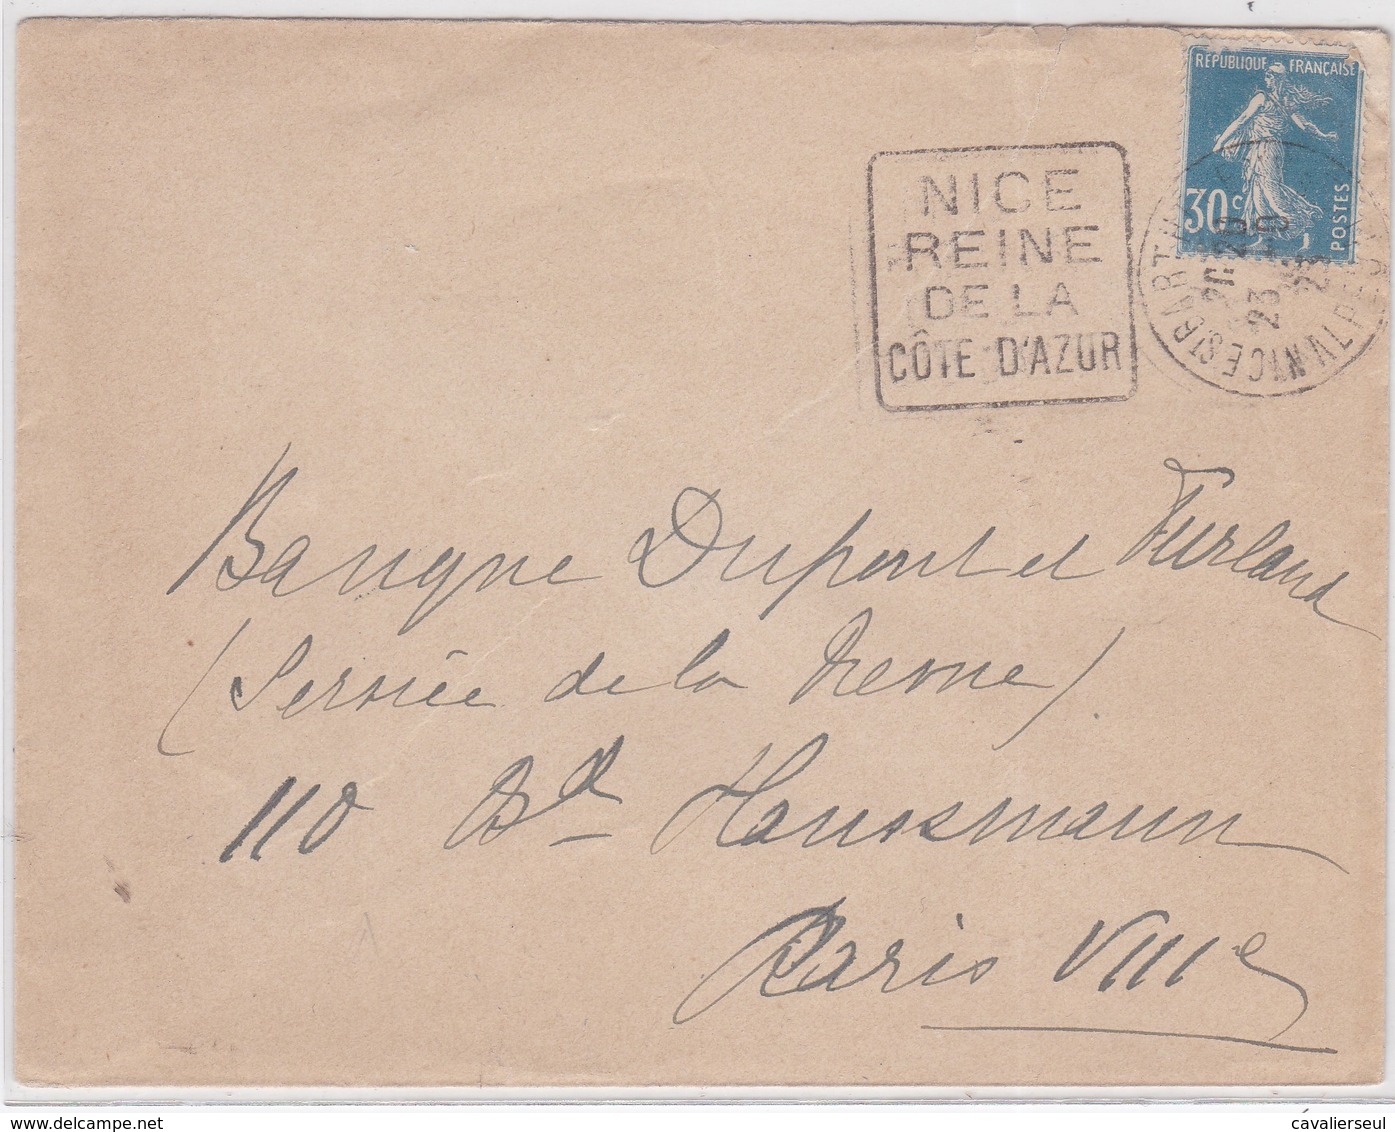 RÉPUBLIQUE FRANÇAISE
30c
POSTES
NICE
REINE
DE LA
CÔTE D'AZUR
Banque Dupont et Furland
(Service de la Revue)
110 Bd Haussmann
Paris VIIIe
cavalierseul